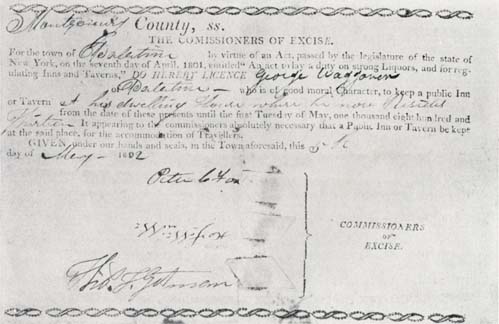 Montgomery County, ss.
THE COMISSIONERS OF EXCISE.
For the town of Palatine by virtue of an Act, passed by the legislature of the state of
New York, on the seventh day of April, 1801, entitled "An act to lay a duty on strong Liquors, and for reg-
ulating Inns and Taverns," DO HEREBY LICENCE George Waggoner
of Palatine who is of good moral Character, to keep a public Inn
or Tavern At his dwelling House where he now Resides
from the date of these presents until the first Tuesday of May, one thousand eight hundred and
It appearing to the commissioners absolutely necessary that a Public Inn or Tavern be kept
at the said place, for the accommodation of Travellers.
GIVEN, under our hands and seals, in the Town aforesaid, this
day of May 1802
Peter C Fox
COMMISSIONERS
OF
EXCISE.